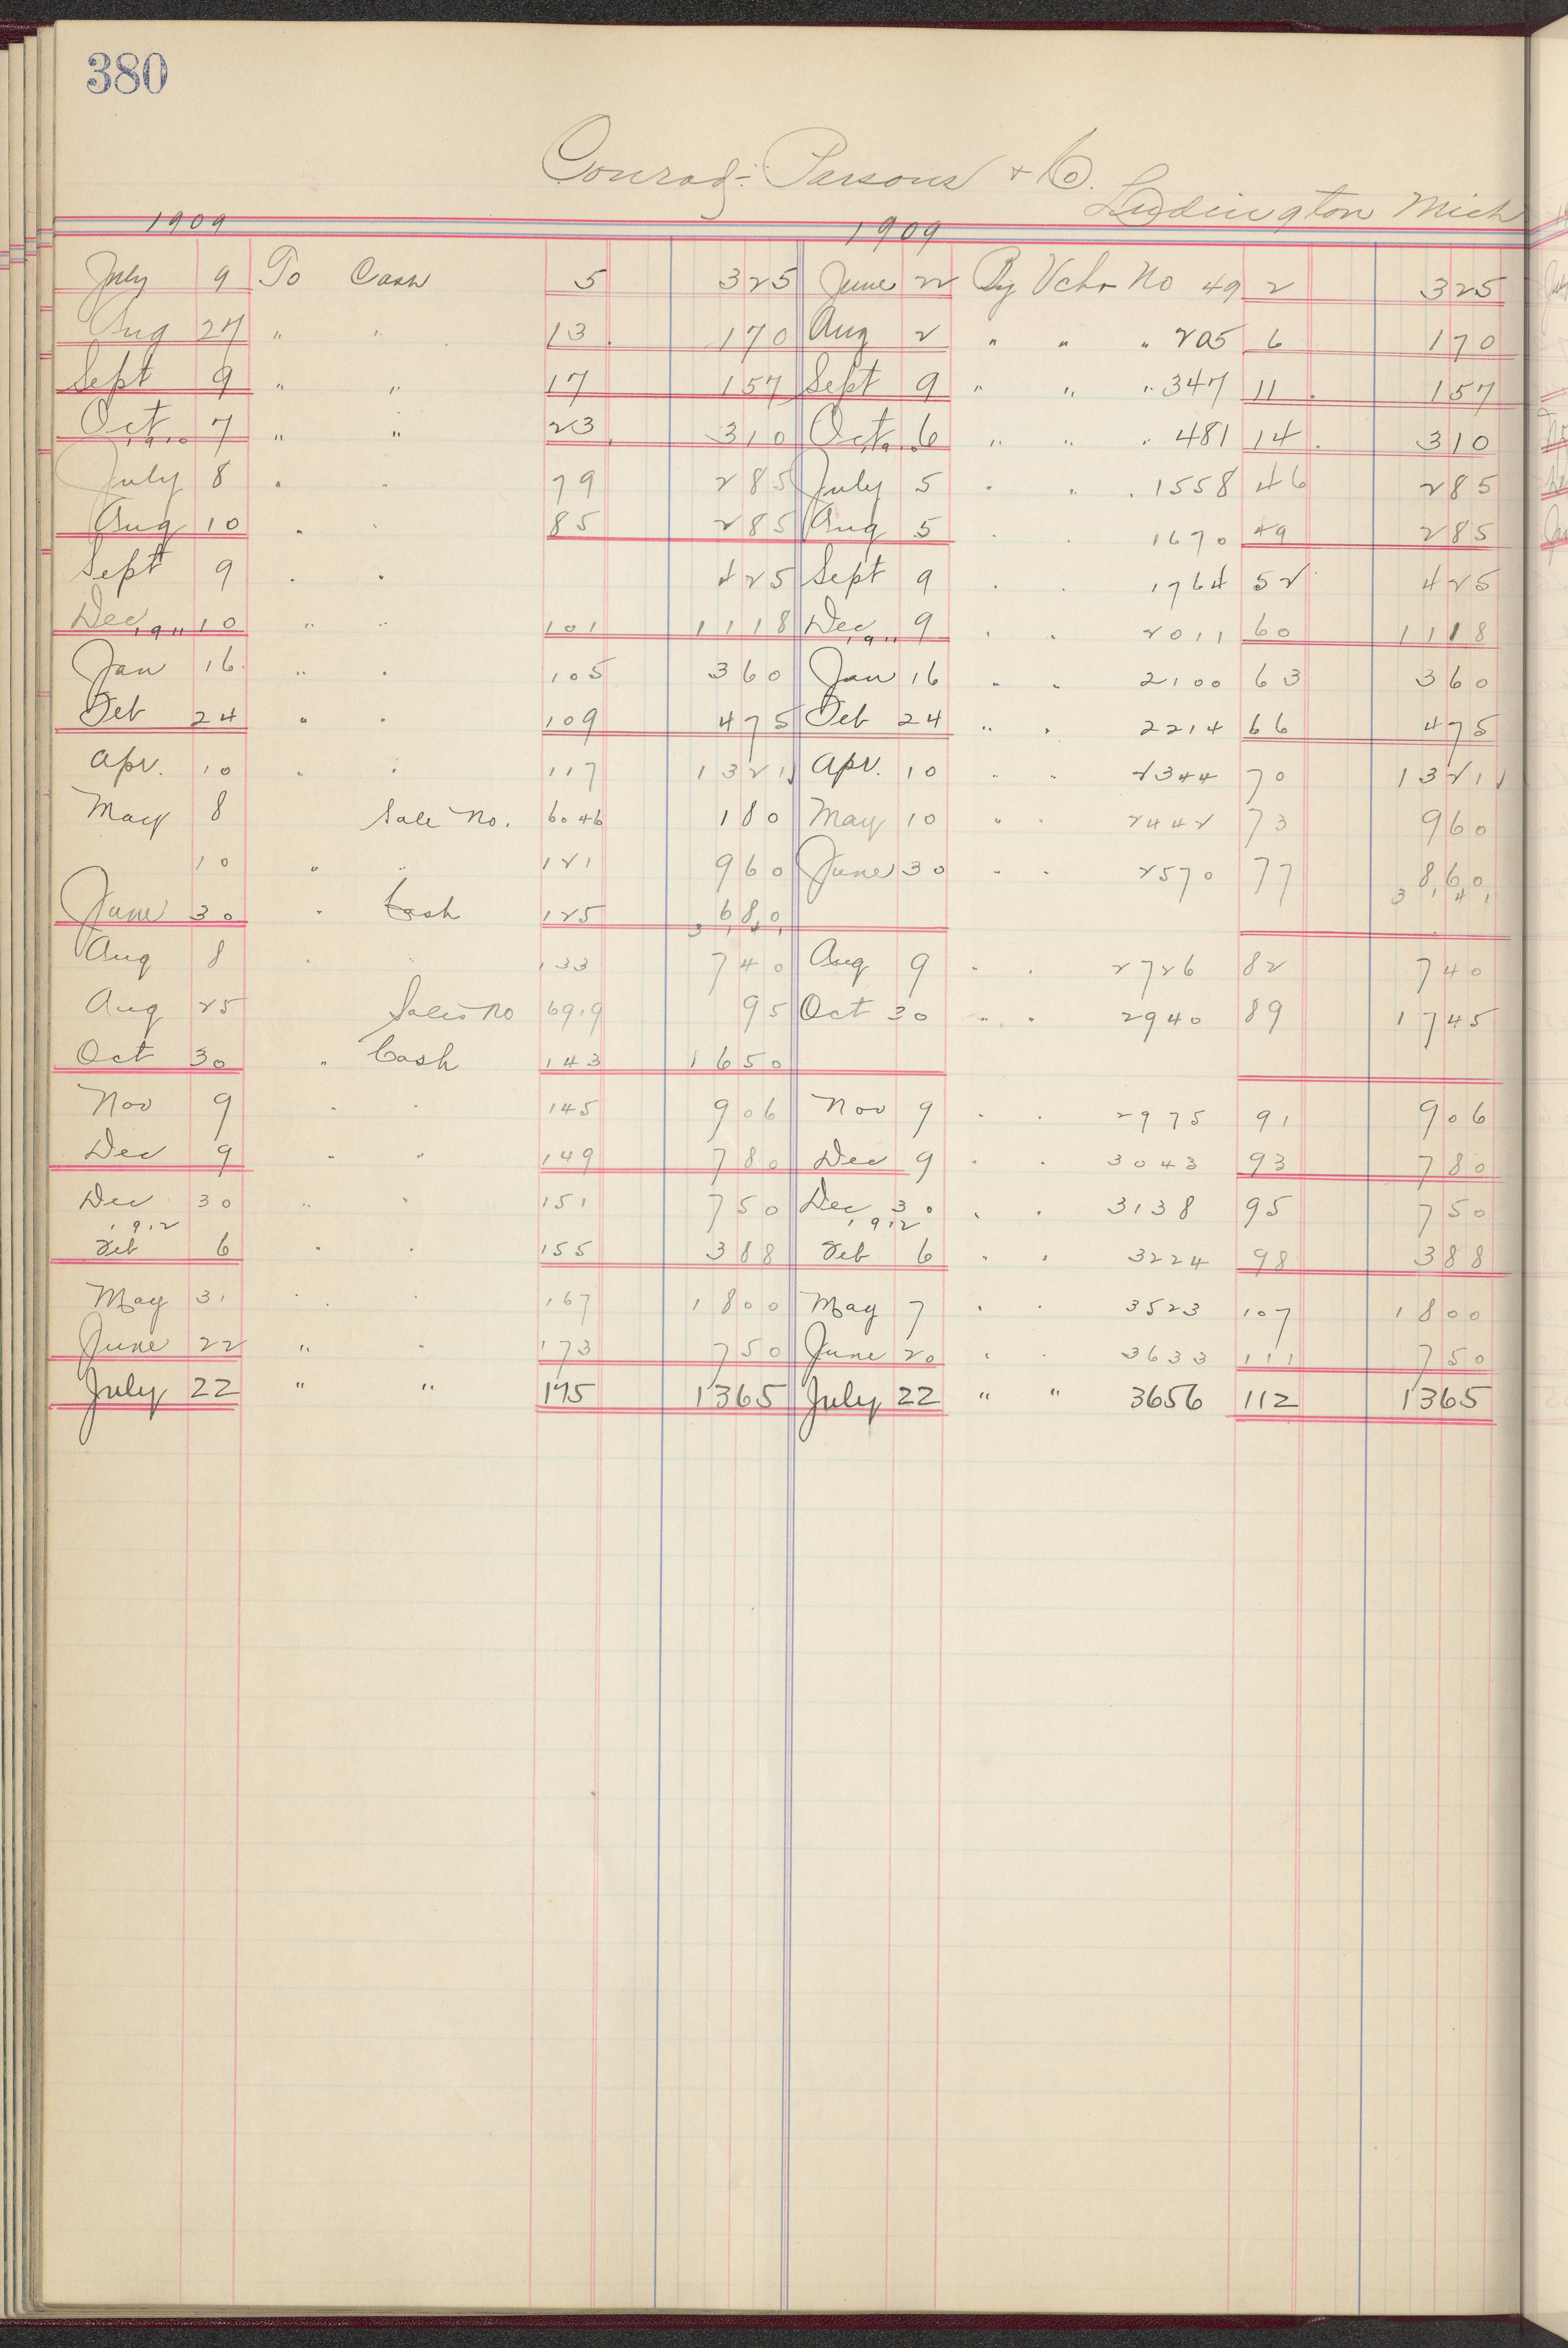 380
Conrad-Parsons & Co.
Ludington Mich
1909 1909
July 9 To Cash 5 325 June 22 By Vchr No 49 2 325
Aug 27 " " 13 170 Aug 2 " " " 205 6 170
Sept 9 " " 17 157 Sept 9 " " " 347 11 157
Oct 7 " " 23 310 Oct 6 " " " 481 14 310
1910 1910
July 8 " " 79 285 July 5 " " " 1558 46 285
Aug 10 " " 85 285 Aug 5 " " 1670 49 285
Sept 9 " " 425 Sept 9 " " 1764 52 425
Dec 10 " " 101 1118 Dec 9 " " 2011 60 1118
1911 1911
Jan 16 " " 105 360 Jan 16 " " 2100 63 360
Feb 24 " " 109 475 Feb 24 " " 2214 66 475
Apr. 10 " " 117 1321 Apr. 10 " " 2344 70 1321
May 8 Sale No. 6046 180 May 10 " " 2442 73 960
10 " " 121 960 June 30 " " 2570 77 860
June 30 " Cash 125 680
3141 3141
Aug 8 " " 133 740 Aug 9 " " 2726 82 740
Aug 25 Sales No 6919 95 Oct 30 " " 2940 89 1745
Oct 30 " Cash 143 1650
Nov 9 " " 145 906 Nov 9 " " 2975 91 906
Dec 9 " " 149 780 Dec 9 " " 3043 93 780
Dec 30 " " 151 750 Dec 30 " " 3138 95 750
1912 1912
Feb 6 " " 155 388 Feb 6 " " 3224 98 388
May 31 " " 167 1800 May 7 " " 3523 107 1800
June 22 " " 173 750 June 20 " " 3633 111 750
July 22 " " 175 1365 July 22 " " 3656 112 1365